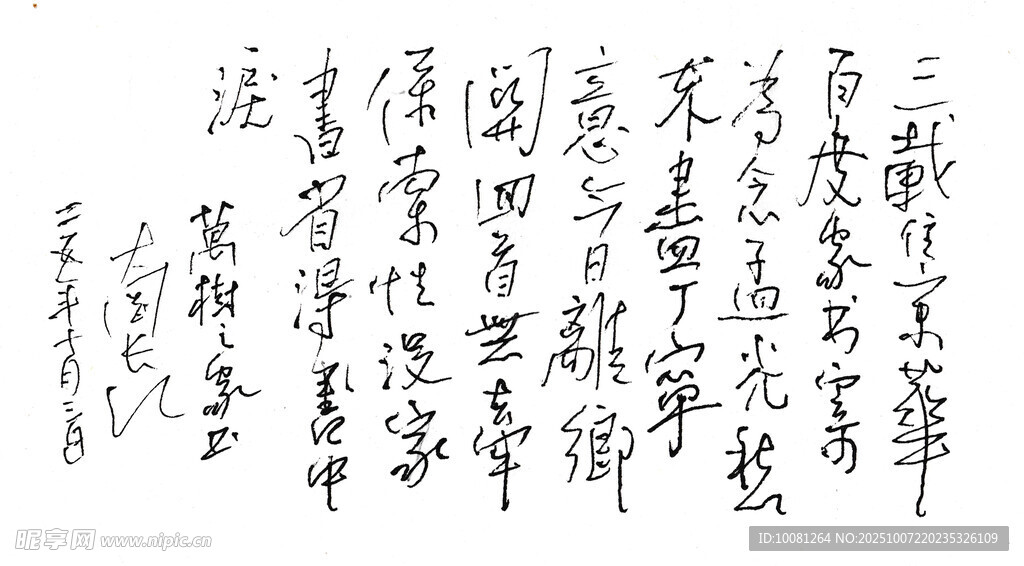 三載住京華
百度家书寄
為念子迴光愁
未盡丁寧
意今日離鄉
關回首無牽
係索性没家
書省得書中
淚
萬樹之家书
二五年十月三日
昵享网 www.nipic.cn
ID:10081264 NO:20251007220235326109